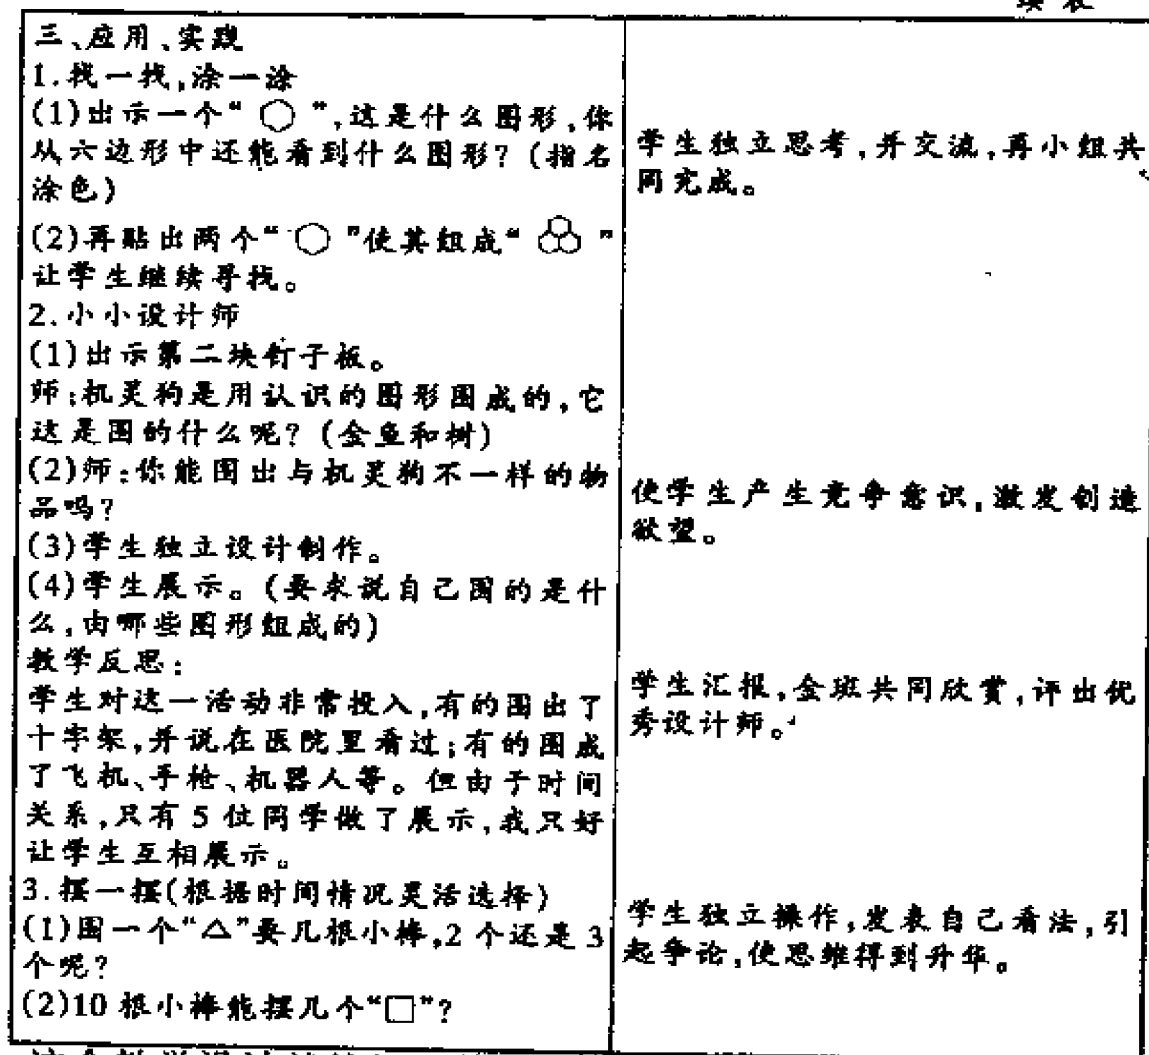 三、应用、实践
1.找一找,涂一涂
(1)出示一个“⬡”,这是什么图形,你
从六边形中还能看到什么图形?(指名
涂色)
(2)再贴出两个“⬡”使其组成“ ”
让学生继续寻找。
2.小小设计师
(1)出示第二块钉子板。
师:机灵狗是用认识的图形围成的,它
这是围的什么呢?(金鱼和树)
(2)师:你能围出与机灵狗不一样的物
品吗?
(3)学生独立设计制作。
(4)学生展示。(要求说自己围的是什
么,由哪些图形组成的)
教学反思:
学生对这一活动非常投入,有的围出了
十字架,并说在医院里看过;有的围成
了飞机、手枪、机器人等。但由于时间
关系,只有5位同学做了展示,我只好
让学生互相展示。
3.摆一摆(根据时间情况灵活选择)
(1)围一个“△”要几根小棒,2个还是3
个呢?
(2)10根小棒能摆几个“□”?
学生独立思考,并交流,再小组共
同完成。
使学生产生竞争意识,激发创造
欲望。
学生汇报,全班共同欣赏,评出优
秀设计师。
学生独立操作,发表自己看法,引
起争论,使思维得到升华。